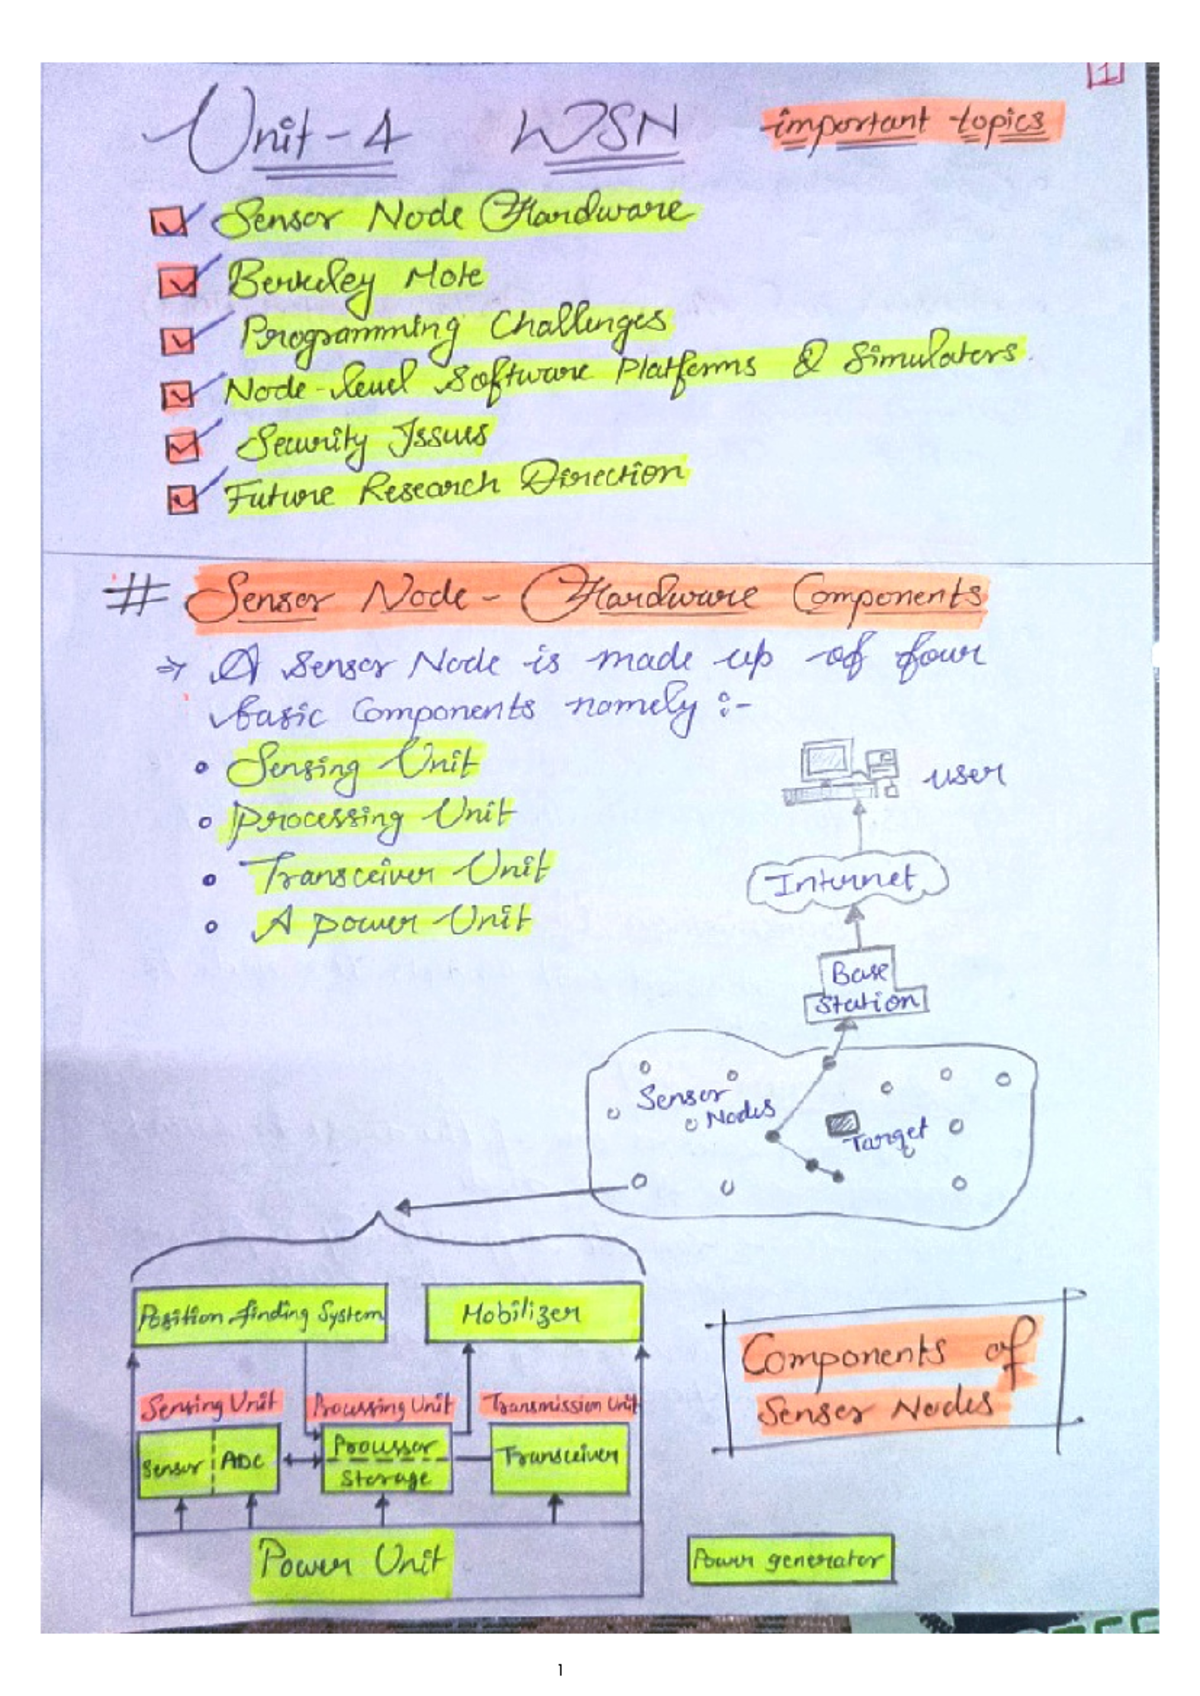 1
Unit-4 WSN important topics
Sensor Node Hardware
Berkeley Mote
Programming Challenges
Node-level Software Platforms & Simulators.
Security Issues
Future Research Direction
# Sensor Node - Hardware Components
⇒ A Sensor Node is made up of four
basic Components namely :-
• Sensing Unit
• Processing Unit
• Transceiver Unit
• A power Unit
user
Internet
Base
Station
Sensor
Nodes
Target
Position finding System
Mobilizer
Components of
Sensor Nodes
Sensing Unit
Processing Unit
Transmission Unit
Sensor
ADC
Processor
Storage
Transceiver
Power Unit
Power generator
1